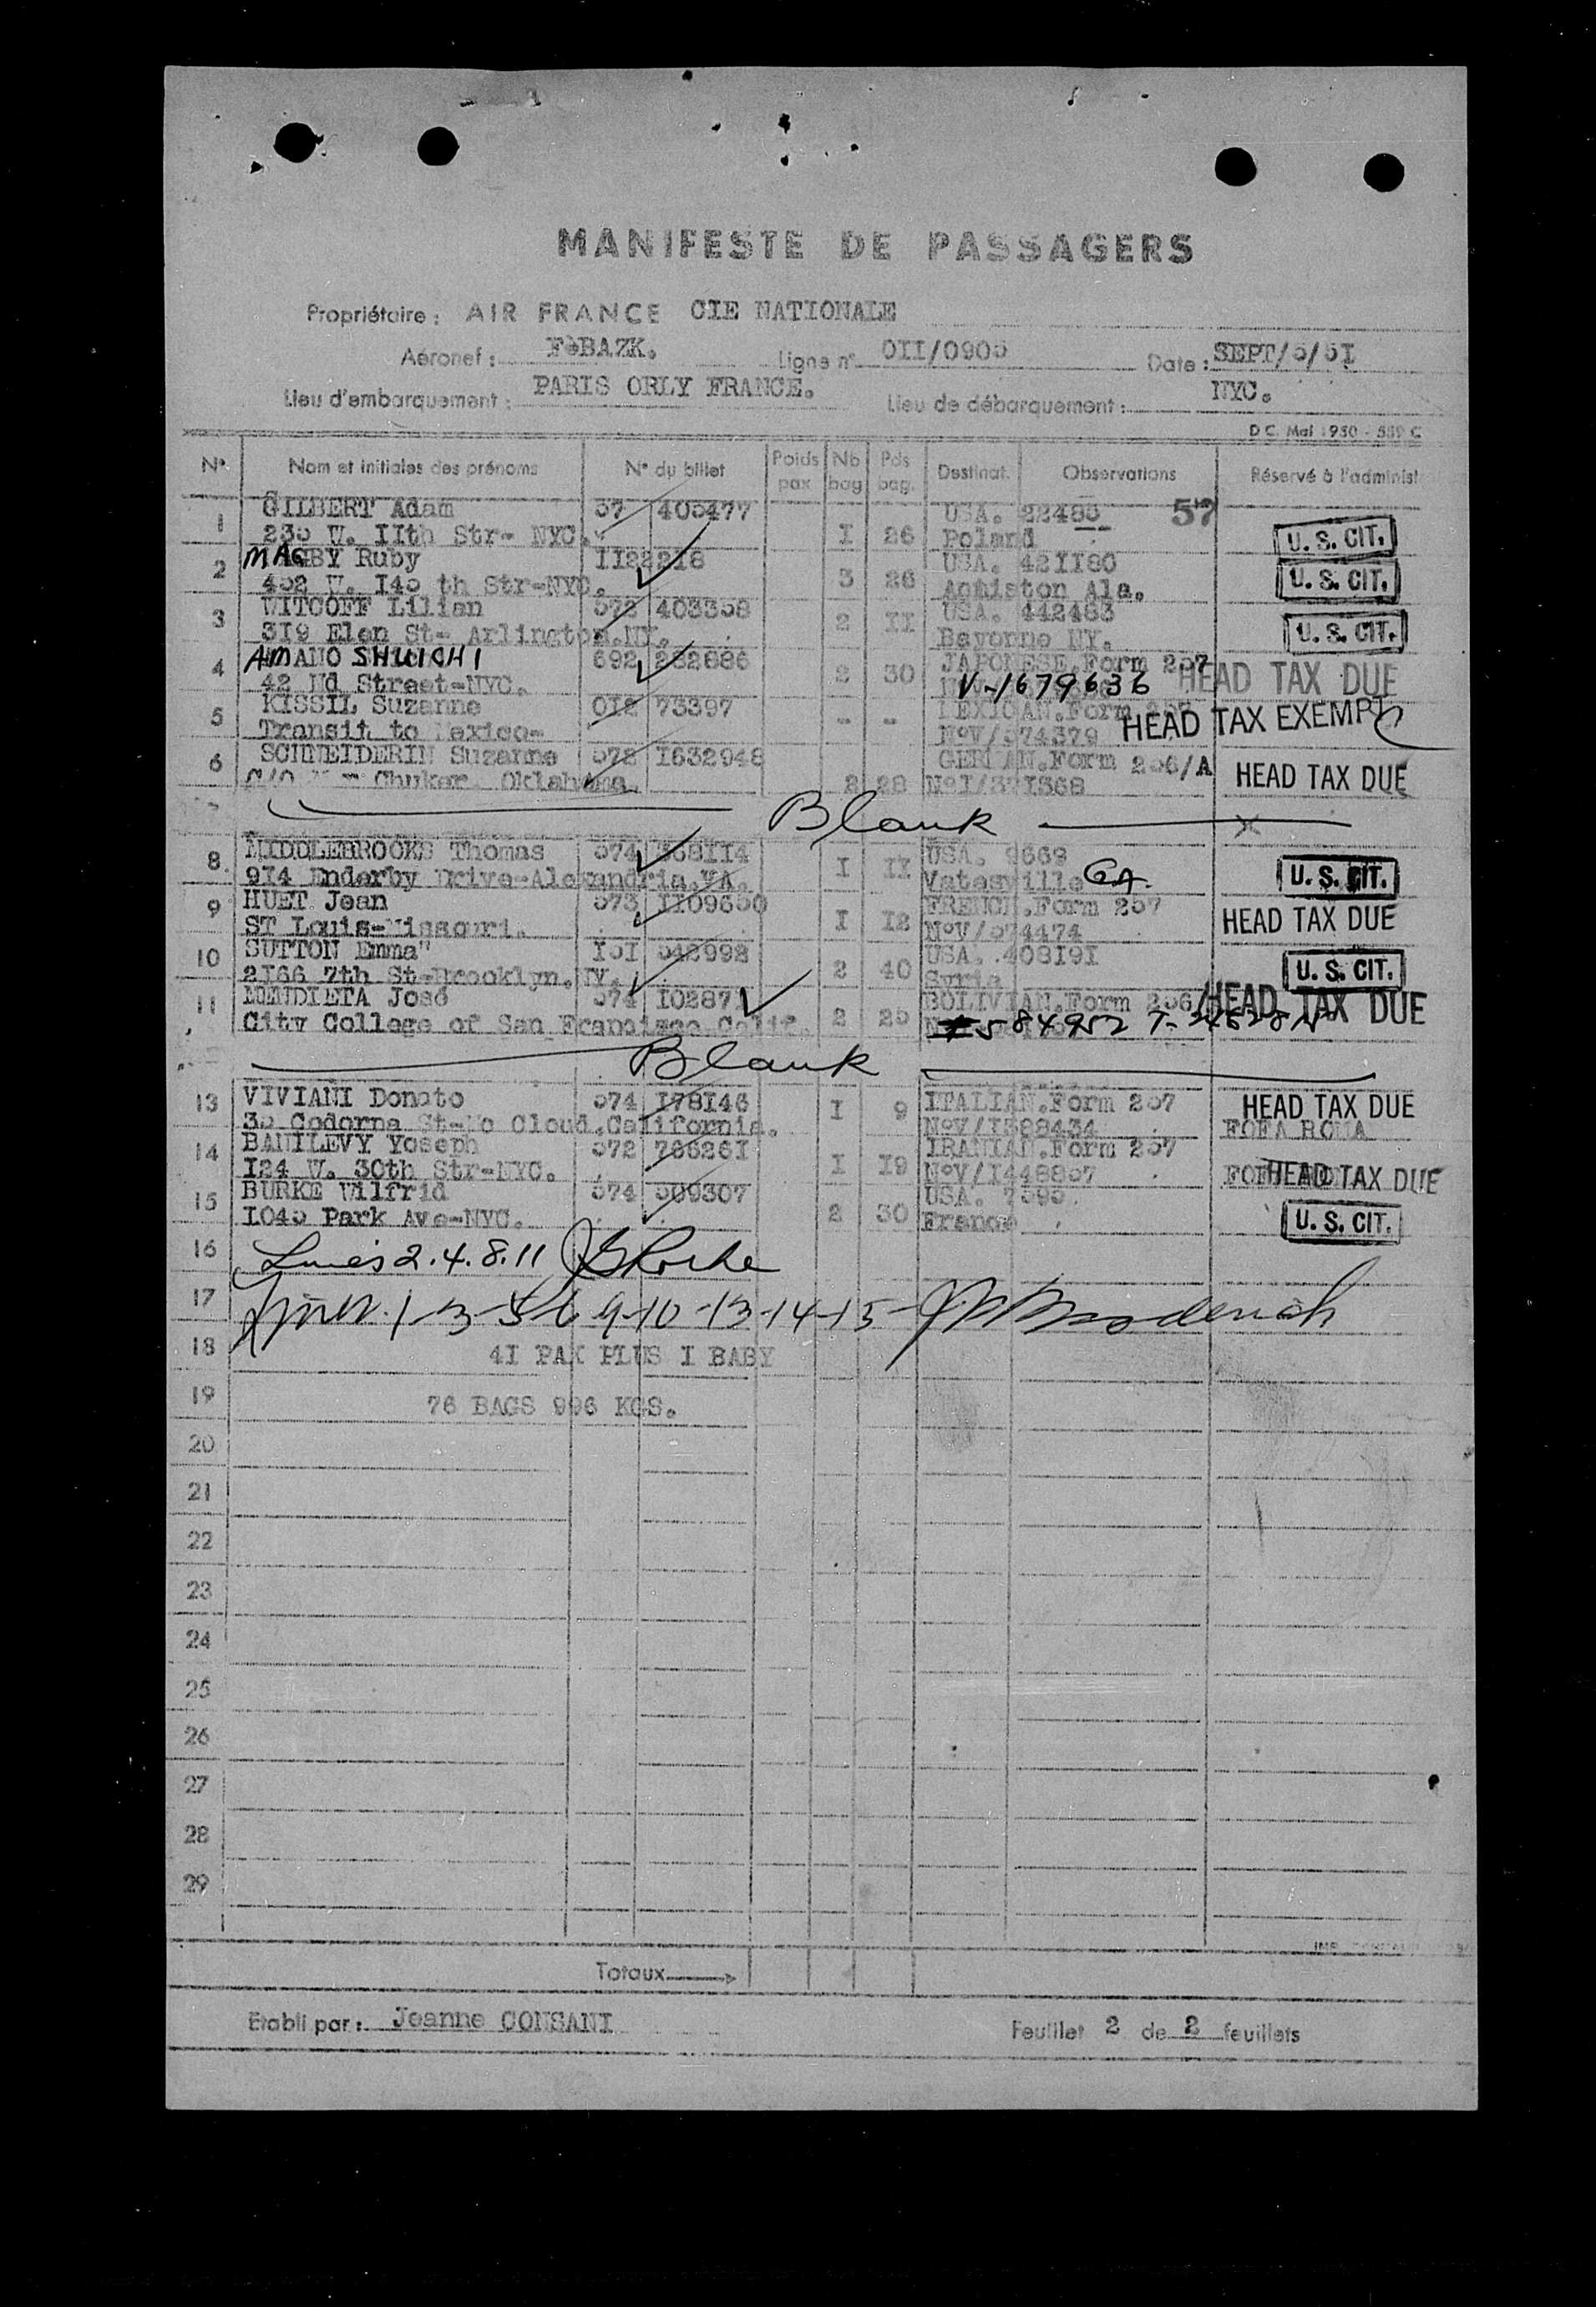 MANIFESTE DE PASSAGERS
Propriétaire : AIR FRANCE CIE NATIONALE
Aéronef : BAZK. Ligne n° OII/0905 Date : SEPT/5/5I
Lieu d'embarquement : PARIS ORLY FRANCE. Lieu de débarquement : NYC.
D C. Mai 1950 - 559 C
N° Nom et initiales des prénoms N° du billet Poids pax Nb bag Pds bag. Destinat. Observations Réservé à l'administ
1 GILBERT Adam 57 405477 USA. 22485 57
235 W. IIth Str- NYC. I 26 Poland U. S. CIT.
2 MAGBY Ruby II22218 USA. 42II80
452 W. I45 th Str-NYC. 3 26 Anniston Ala. U. S. CIT.
3 WITCOFF Lilian 572 403358 USA. 442483
3I9 Elen St- Arlington.NY. 2 II Bayonne NY. U. S. CIT.
4 AMANO SHUICHI 692 232886 JAPONESE.Form 257
42 Nd Street-NYC. 2 30 V-1679636 HEAD TAX DUE
5 KISSIL Suzanne 012 73397 MEXICAN.Form
Transit to Mexico- - - N°V/574379 HEAD TAX EXEMPT
6 SCHNEIDERIN Suzanne 572 I632948 GERMAN.Form 256/A
C/O Chuker. Oklahoma. 2 28 N°I/371568 HEAD TAX DUE
Blank X
8 MIDDLEBROOKS Thomas 574 USA. 9669
9I4 Enderby Drive-Alexandria.VA. I II Yatesville GA. U. S. CIT.
9 HUET Jean 573 II09650 FRENCH.Form 257
ST Louis-Missouri. I I2 N°V/574474 HEAD TAX DUE
10 SUTTON Emma" I5I 542992 USA. 408I9I
2I66 7th St-Brooklyn.NY. 2 40 Syria U. S. CIT.
11 MENDIETA José 574 I0287 BOLIVIAN.Form 256/ HEAD TAX DUE
City College of San Francisco.Calif. 2 25 584952
Blank
13 VIVIANI Donato 574 I78I46 ITALIAN.Form 257 HEAD TAX DUE
35 Codorna St-Mc Cloud.California. I 9 N°V/I388434 FOFA ROMA
14 BANILEVY Yoseph 572 76626I IRANIAN.Form 257
I24 W. 30th Str-NYC. I I9 N°V/I448857 HEAD TAX DUE
15 BURKE Wilfrid 574 509307 USA. 7595
I045 Park Ave-NYC. 2 30 France U. S. CIT.
16 Lines 2.4.8.11
17 Lines 1-3-5-6 9-10-13-14-15-
18 4I PAX PLUS I BABY
19 76 BAGS 996 KGS.
20
21
22
23
24
25
26
27
28
29
Totaux
Etabli par : Jeanne CONSANI Feuillet 2 de 2 feuillets